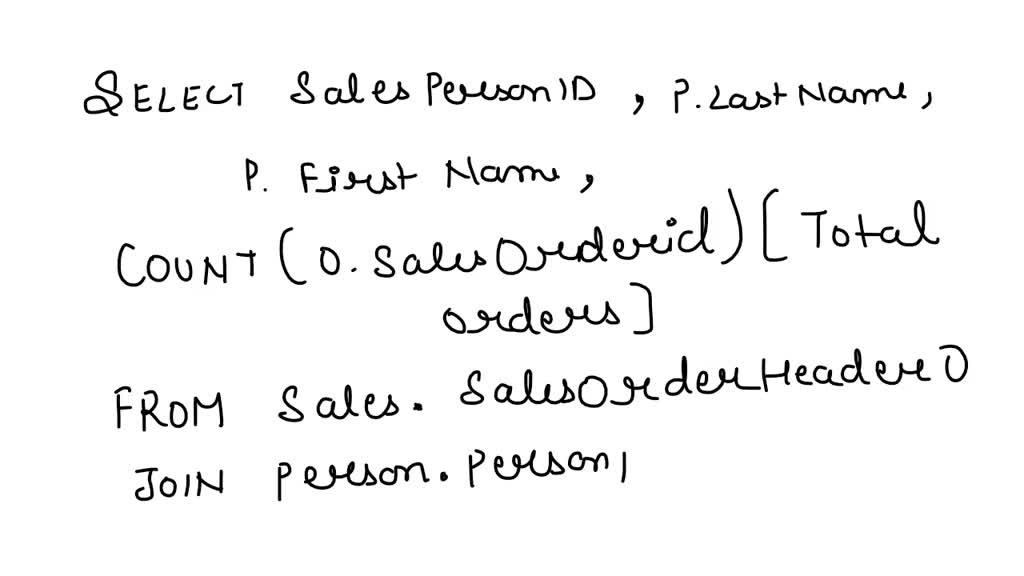 SELECT SalesPersonID , P.LastName,
P. First Name,
COUNT (O.SalesOrderid) [Total
orders]
FROM Sales. SalesOrderHeader O
JOIN person.person